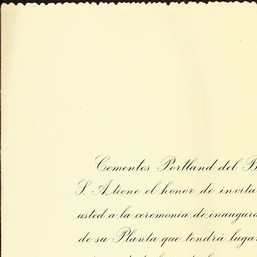 Cementos Portland del B
S. A. tiene el honor de invita
usted a la ceremonia de inaugura
de su Planta que tendrá lugar